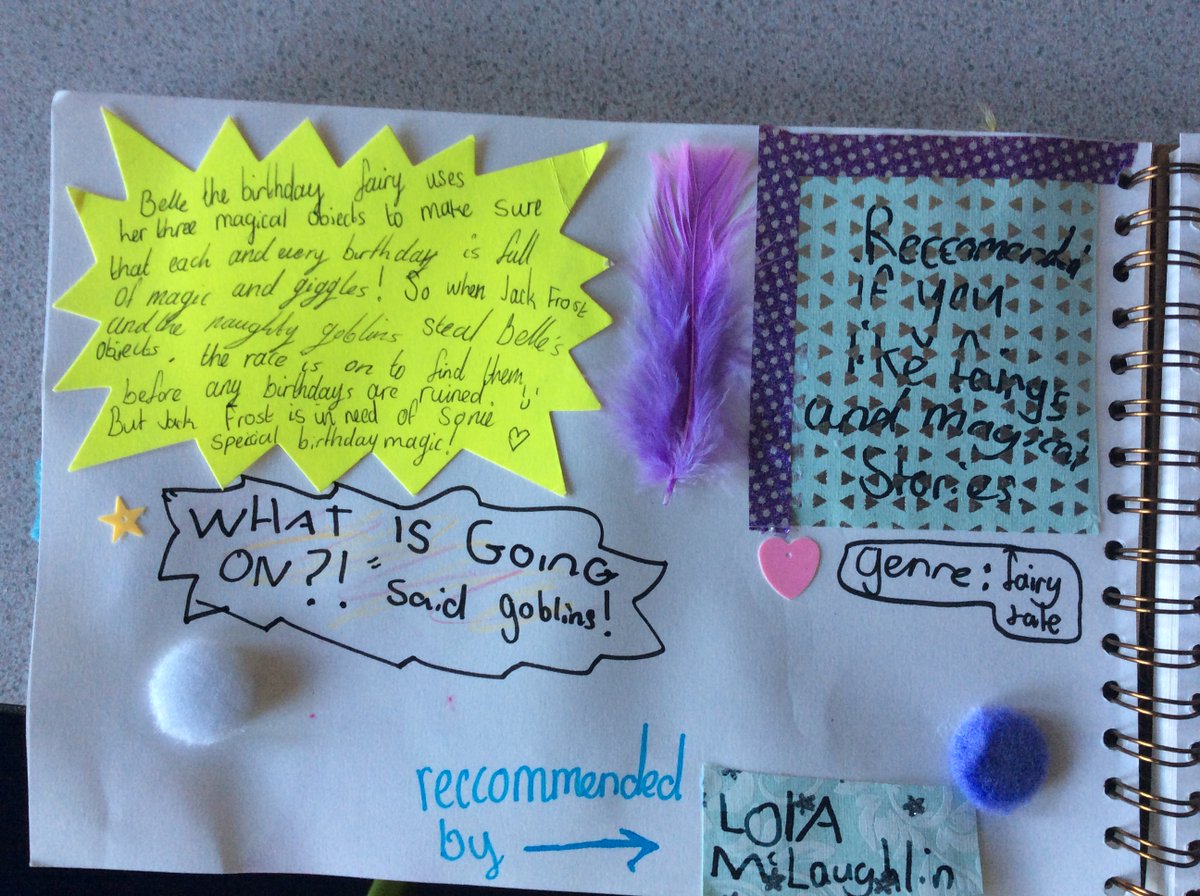 Belle the birthday fairy uses
her three magical objects to make sure
that each and every birthday is full
of magic and giggles! So when Jack Frost
and the naughty goblins steal Belle's
objects, the race is on to find them
before any birthdays are ruined.
But Jack Frost is in need of some
special birthday magic!
WHAT IS GOING
ON?! = Said goblins!
Reccomended
if you
like fairys
and magical
Stories
genre: fairy
tale
reccommended
by
LOlA
McLaughlin